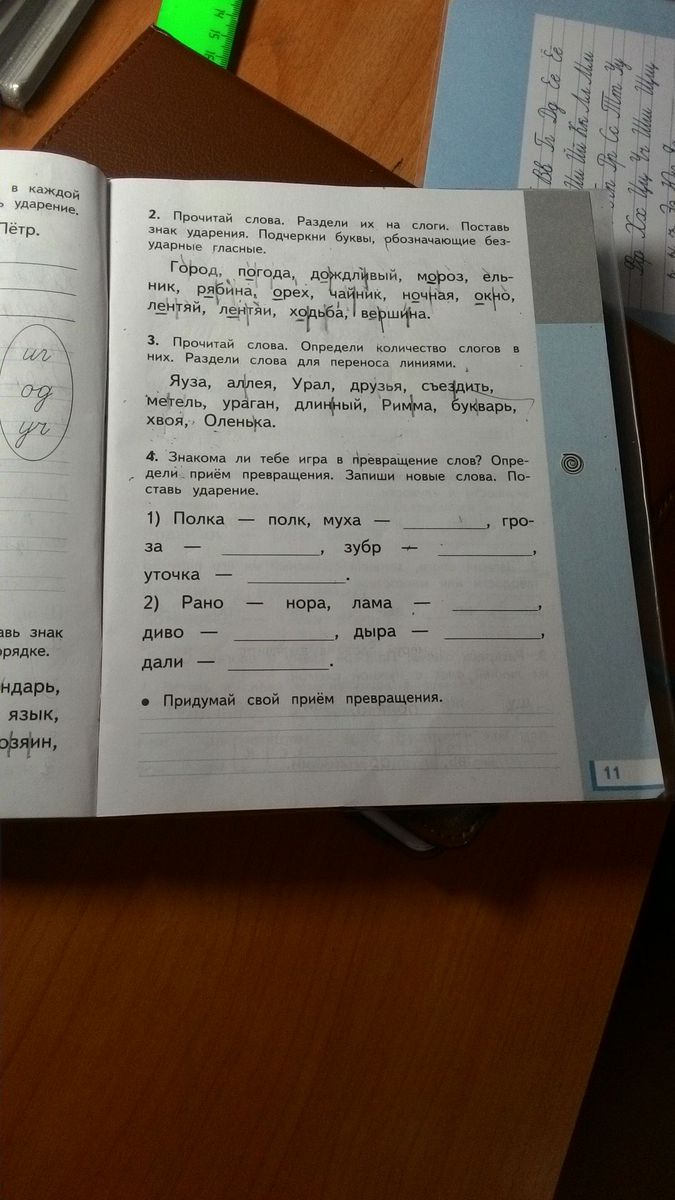 в каждой
ударение.
Пётр.
иг
од
уч
знак
ндарь,
язык,
озяин,
2. Прочитай слова. Раздели их на слоги. Поставь
знак ударения. Подчеркни буквы, обозначающие без-
ударные гласные.
Город, погода, дождливый, мороз, ель-
ник, рябина, орех, чайник, ночная, окно,
лентяй, лентяи, ходьба, вершина.
3. Прочитай слова. Определи количество слогов в
них. Раздели слова для переноса линиями.
Яуза, аллея, Урал, друзья, съездить,
метель, ураган, длинный, Римма, букварь,
хвоя, Оленька.
4. Знакома ли тебе игра в превращение слов? Опре-
дели приём превращения. Запиши новые слова. По-
ставь ударение.
1) Полка — полк, муха — ________, гро-
за — ________, зубр — ________,
уточка — ________.
2) Рано — нора, лама — ________,
диво — ________, дыра — ________,
дали — ________.
• Придумай свой приём превращения.
11
14 15
Вв Гг Дд Ее Ёё
Ии Йй Кк Лл Мм
Пп Рр Сс Тт Уу
Фф Хх Цц Чч Шш Щщ